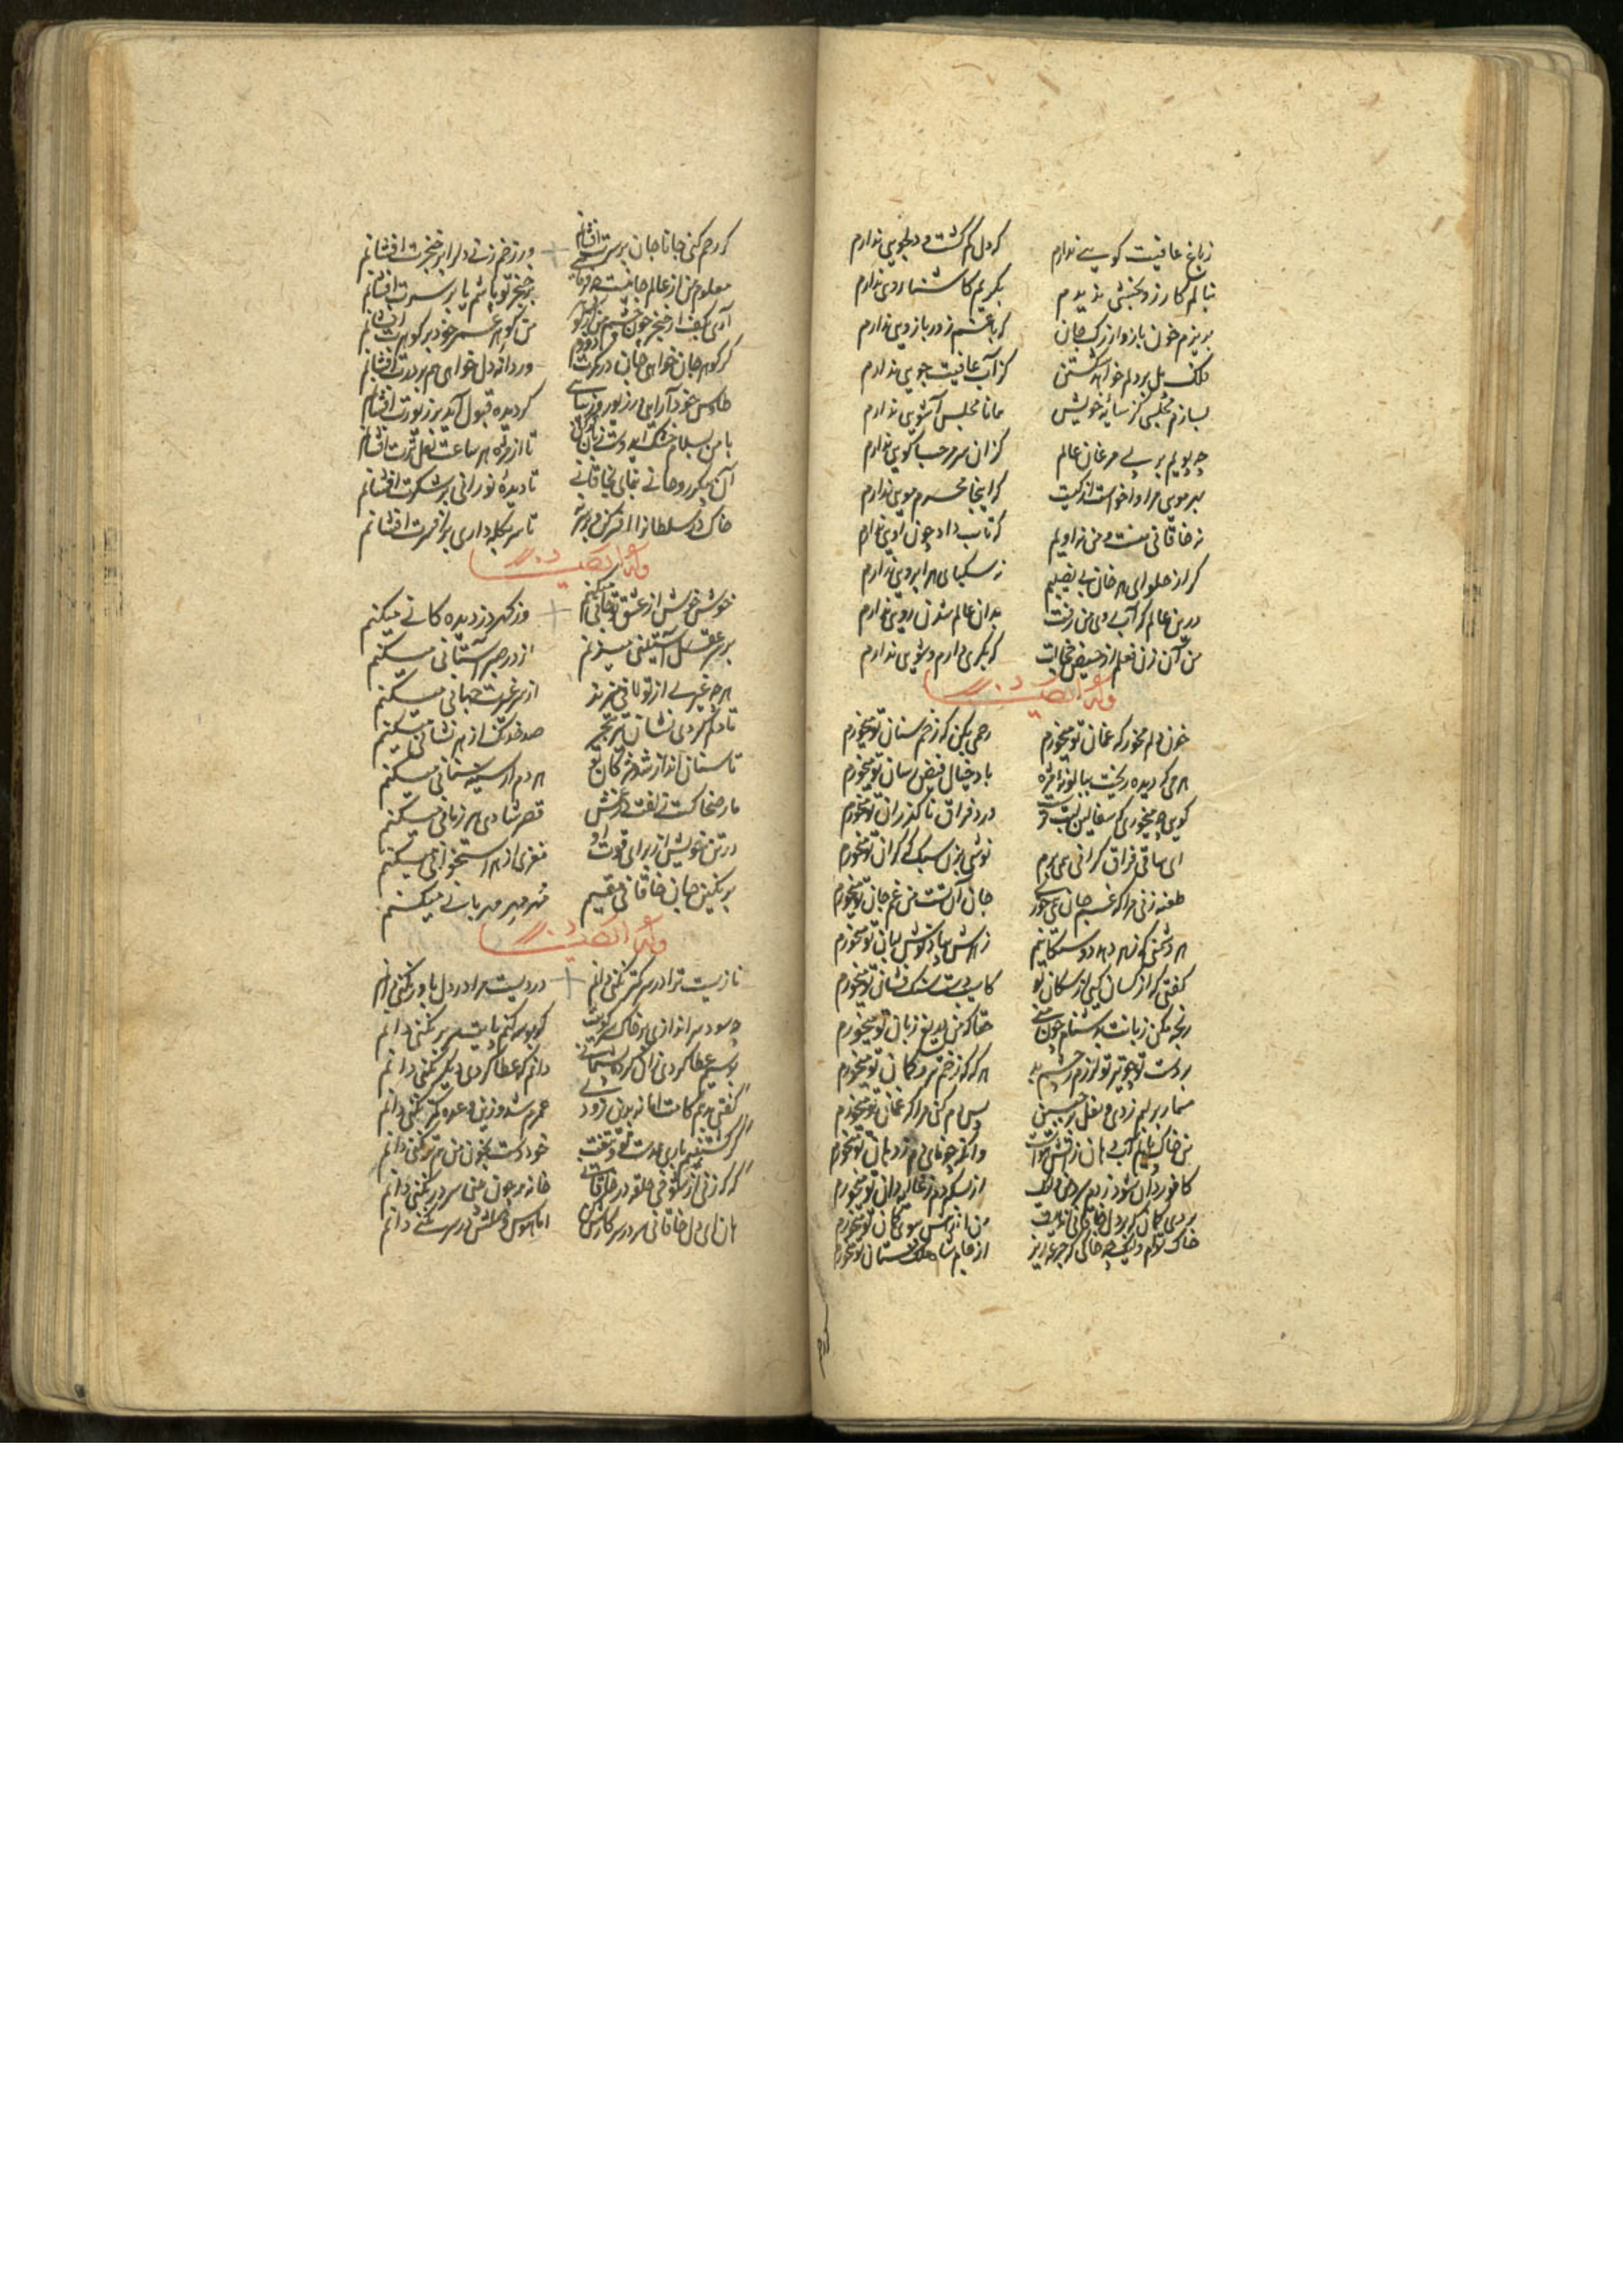 زباغ عافیت بویی ندارم که دل گم گشت و دلجویی ندارم
بنالم کارزو بخشی ندیدم بگریم کاشنا رویی ندارم
بریزم خون بازو از رگ جان که با غم زور بازویی ندارم
فلک پل بر دلم خواهد شکستن کز آب عافیت جویی ندارم
بسازم مجلسی کز سایه خویش همانا مجلس آشویی ندارم
چه پویم بر پی مرغان عالم کزان سو مرحبا گویی ندارم
بهر مویی مرا واخواست از کیست که اینجا محرم مویی ندارم
نه خاقانی منست و من نه اویم که تاب داد چون اویی ندارم
گر از حلوای هر خوان بی نصیبم نه سکبای هر ابرویی ندارم
درین عالم که آب روی من رفت بدان عالم شدن رویی ندارم
من آن زن فعلم از حیض خجالت که بکری دارم و شویی ندارم
وله ایضا
خون دلم مخور که غمان تو میخورم رحمی بکن که زخم سنان تو میخورم
هر می که دیده ریخت بپالونه مژه با یاد خیال فیض رسان تو میخورم
گویی چه میخوری که سفالین لبت درد فراق ناگذران تو میخورم
ای ساقی فراق گرانی همی برم نوشی بزن سبک که گران تو میخورم
طعنه زنی مرا که غم جان همی خوری جان آن تست من غم جان تو میخورم
هر دشمنی که زهر دهد دوستکانیم زهرش بیاد نوش لبان تو میخورم
گفتی که از کسان کیی از سگان تو کاسیب دست سنگ فشان تو میخورم
رنجه مکن زبانت بدشنام چون منی حقا که من دریغ زبان تو میخورم
بر دست تو چو تیر تو لرزم ز چشم بد هر گه که زخم تیر و کمان تو میخورم
مسمار بر لبم زدی و نعل بر جبین پس وام کن مرا که غمان تو میخورم
من خاک پایم آب دهان زآتش هوات وآنگه چو نای دم ز دهان تو میخورم
کافوردان شود ز دم سرد من فلک از بس که دم ز غالیه دان تو میخورم
بردی گمان که بر دل خاقانی آتش من آتش سوی گمان تو میخورم
خاک توام و لیک چه خاکی که جرعه ریز از جام شاه ملک ستان تو میخورم
گر رحم کنی جانا جان بر سرت افشانم ور زخم زنی دل را بر خنجرت افشانم
معلوم من از عالم جانیست چه فرمایی بر خنجر تو پاشم یا بر سرت افشانم
آری بکف ار خنجر چون چشم من از گوهر من گوهر عمر خود بر گوهرت افشانم
گر گوهر جان خواهی جان در کمرت دوزم ور دانه دل خواهی هم بر درت افشانم
طاوس خودآرایی در زیور زیبایی گر دیده قبول آید بر زیورت افشانم
با من بسلام خشک ای دوست زبان تر کن تا از مژه هر ساعت لعل ترت افشانم
آن پیکر روحانی بنمای بخاقانی تا دیده نورانی بر پیکرت افشانم
خاک در سلطانرا افسر کن و بر سر نه تا سر بکله داری بر افسرت افشانم
وله ایضا
خوش خوش از عشق تو جانی میکنم وز گهر در دیده کانی میکنم
بر سر عقل آستینی میزنم از در صبر آستانی میکنم
هر چه غیر از تو باقی میزند از سر غیرت جهانی میکنم
تا دلم کردی نشان تیر هجر صد خدنگ از هر نشانی میکنم
تا سنان انداز شد مژگان تو هر دم از سینه سنانی میکنم
مار ضحاکست زلفت کز غمش قصر شادی هر زمانی میکنم
در تن خویش از برای قوت او مغزی از هر استخوانی میکنم
بر نگین جان خاقانی مقیم مهر مهر مهربانی میکنم
وله ایضا
نازیست ترا در سر کمتر نکنی دانم دردیست مرا در دل باور نکنی دانم
چه سود سر اندازی بر خاک سر کویت کو بوسه کنم پایت سر بر نکنی دانم
بوسیم عطا کردی زان کرده پشیمانی دانم که عطا کردی دیگر نکنی دانم
گفتی بدهم کامت اما نه بدین زودی عمرم شد و زین وعده کمتر نکنی دانم
گر کشتنیم باری هم دست تو و تیغت خود دست بخون من هم تر نکنی دانم
گه گه زنی از شوخی حلقه در خاقانی خانه بر چون منی سر در نکنی دانم
هان ای دل خاقانی سر در سر کارش کن اما هوس وصلش در سر نکنی دانم